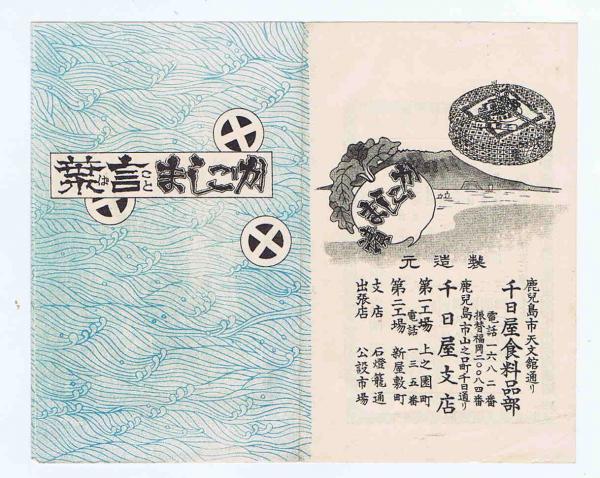 かごしま言葉
こと
ば
かごしま漬
製造元
鹿兒島市天文館通り
千日屋食料品部
電話一六八二番
振替福岡二〇〇八四番
鹿兒島市山之口町千日通り
千日屋支店
第一工場 上之園町
電話一三五番
第二工場 新屋敷町
支店 石燈籠通
出張店 公設市場